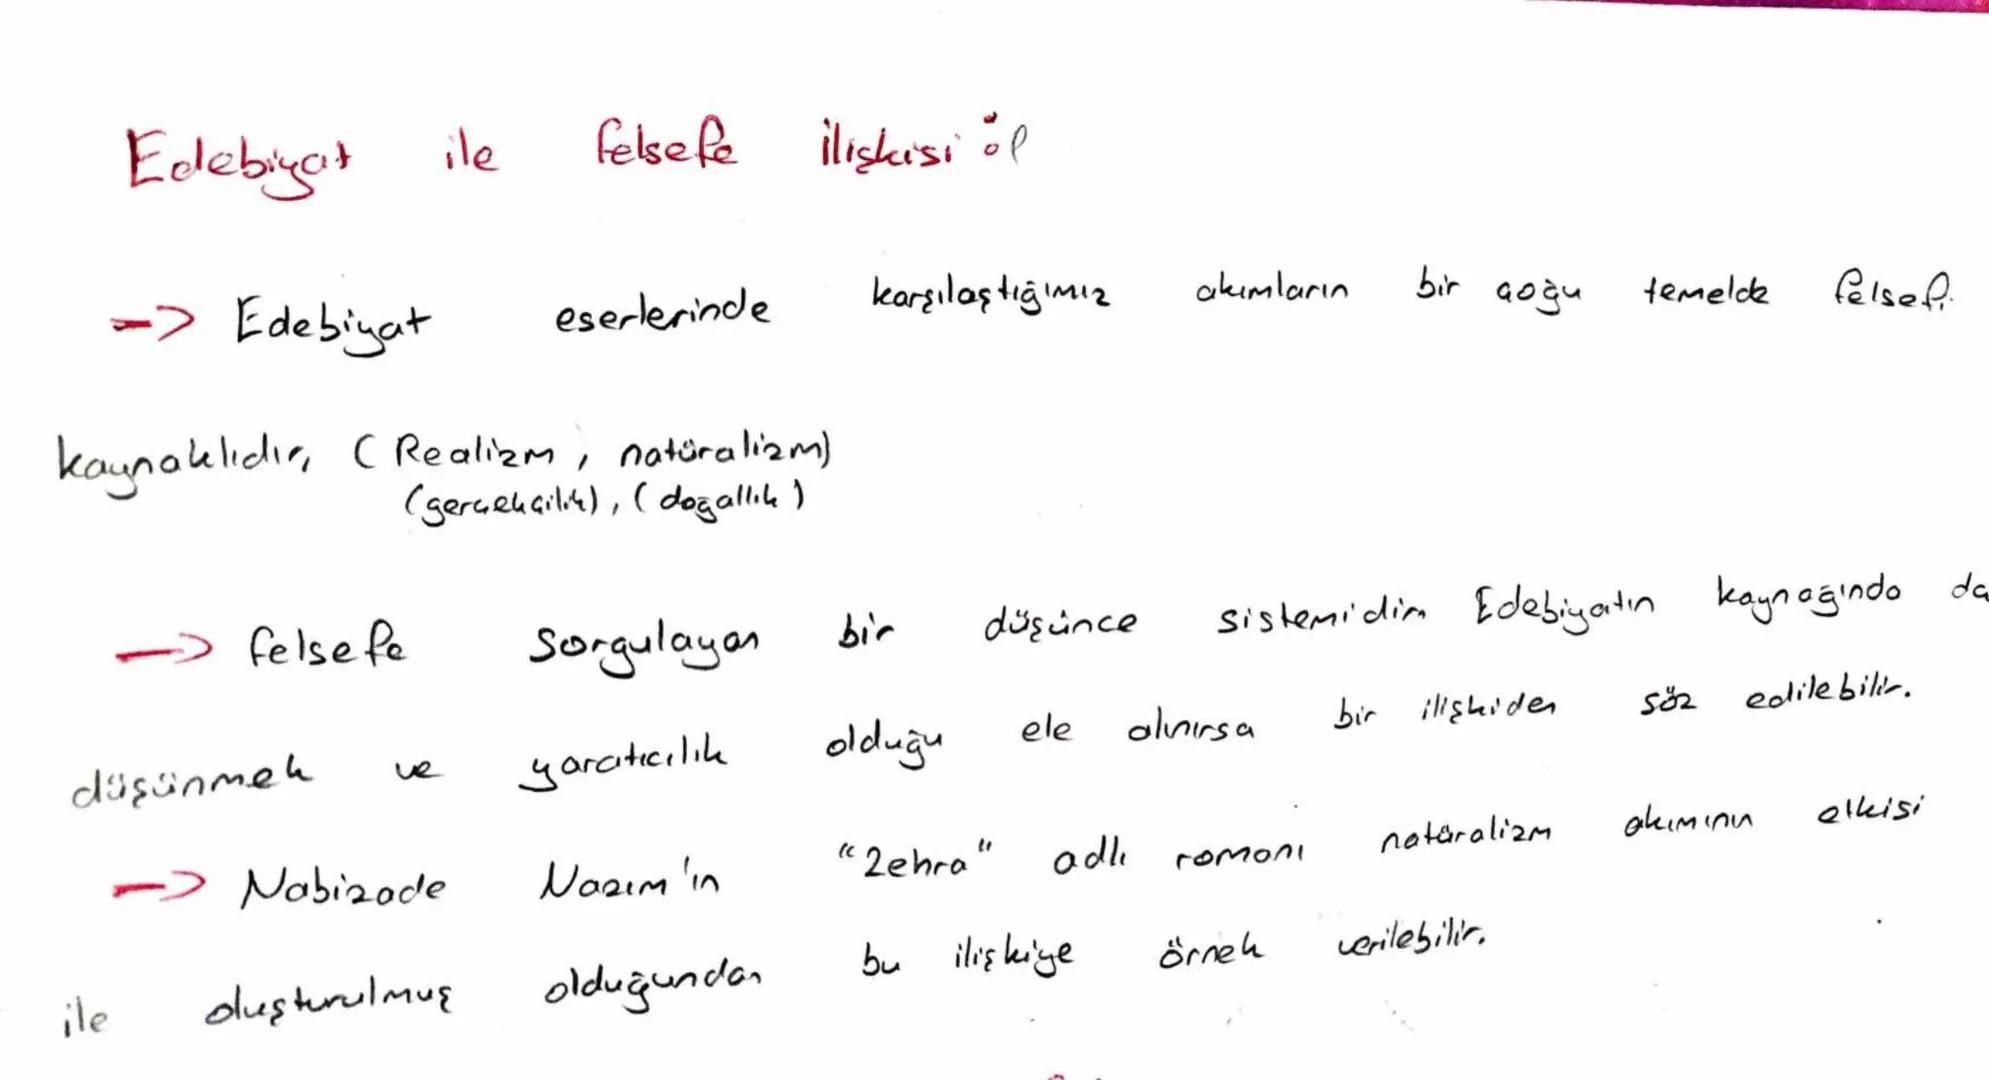 Edebiyat ile felsefe ilişkisi :
-> Edebiyat eserlerinde karşılaştığımız akımların bir çoğu temelde felsefi
kaynaklıdır, ( Realizm, natüralizm)
(gerçekçilik), ( doğallık )
-> felsefe sorgulayan bir düşünce sistemidir. Edebiyatın kaynağında da
düşünmek ve yaratıcılık olduğu ele alınırsa bir ilişkiden söz edilebilir.
-> Nabizade Nazım'ın "Zehra" adlı romanı natüralizm akımının etkisi
ile oluşturulmuş olduğundan bu ilişkiye örnek verilebilir.